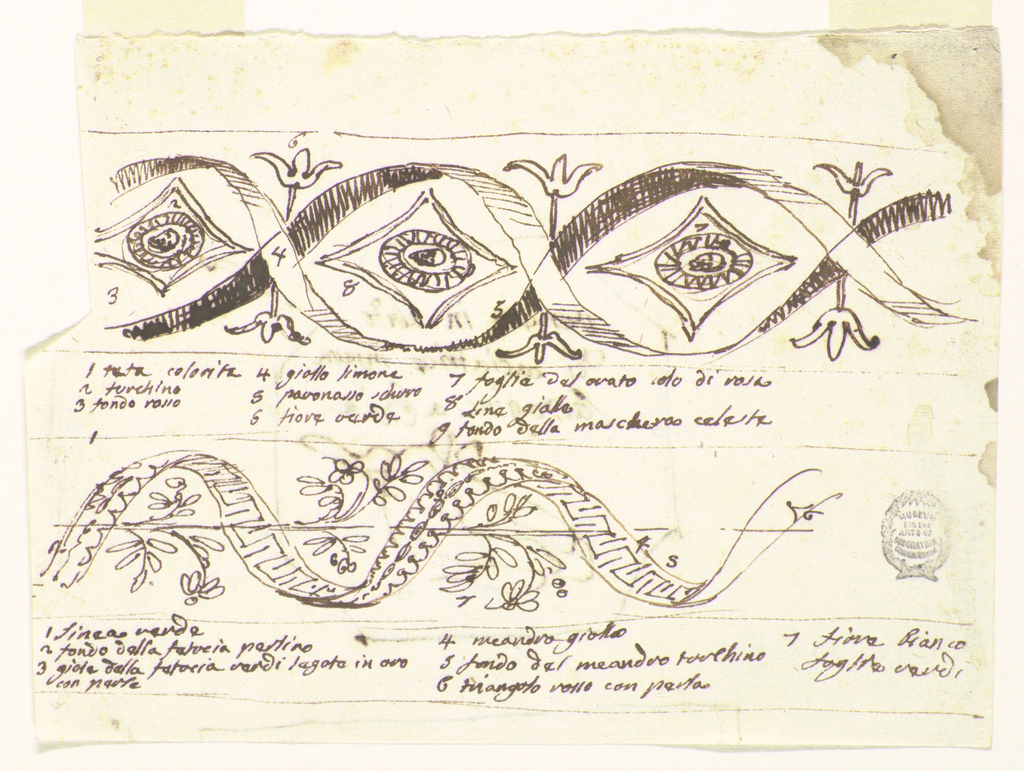 6
2
7
4
3
8
5
1 teta colorita
2 turchino
3 fondo rosso
4 giallo limone
5 pavonasso schuro
6 fiore verde
7 foglie del ovato colo di rosa
8 Line gialle
9 fondo della maschera celeste
1
2
3
6
4
5
7
1 Linea verde
2 fondo della fatocia perlino
3 gioie della fatocia verdi legate in oro
con perle
4 meandro giallo
5 fondo del meandro turchino
6 triangolo rosso con perla
7 fiore Bianco
foglie verdi
MUSEUM
FOR THE
ARTS OF
DECORATION